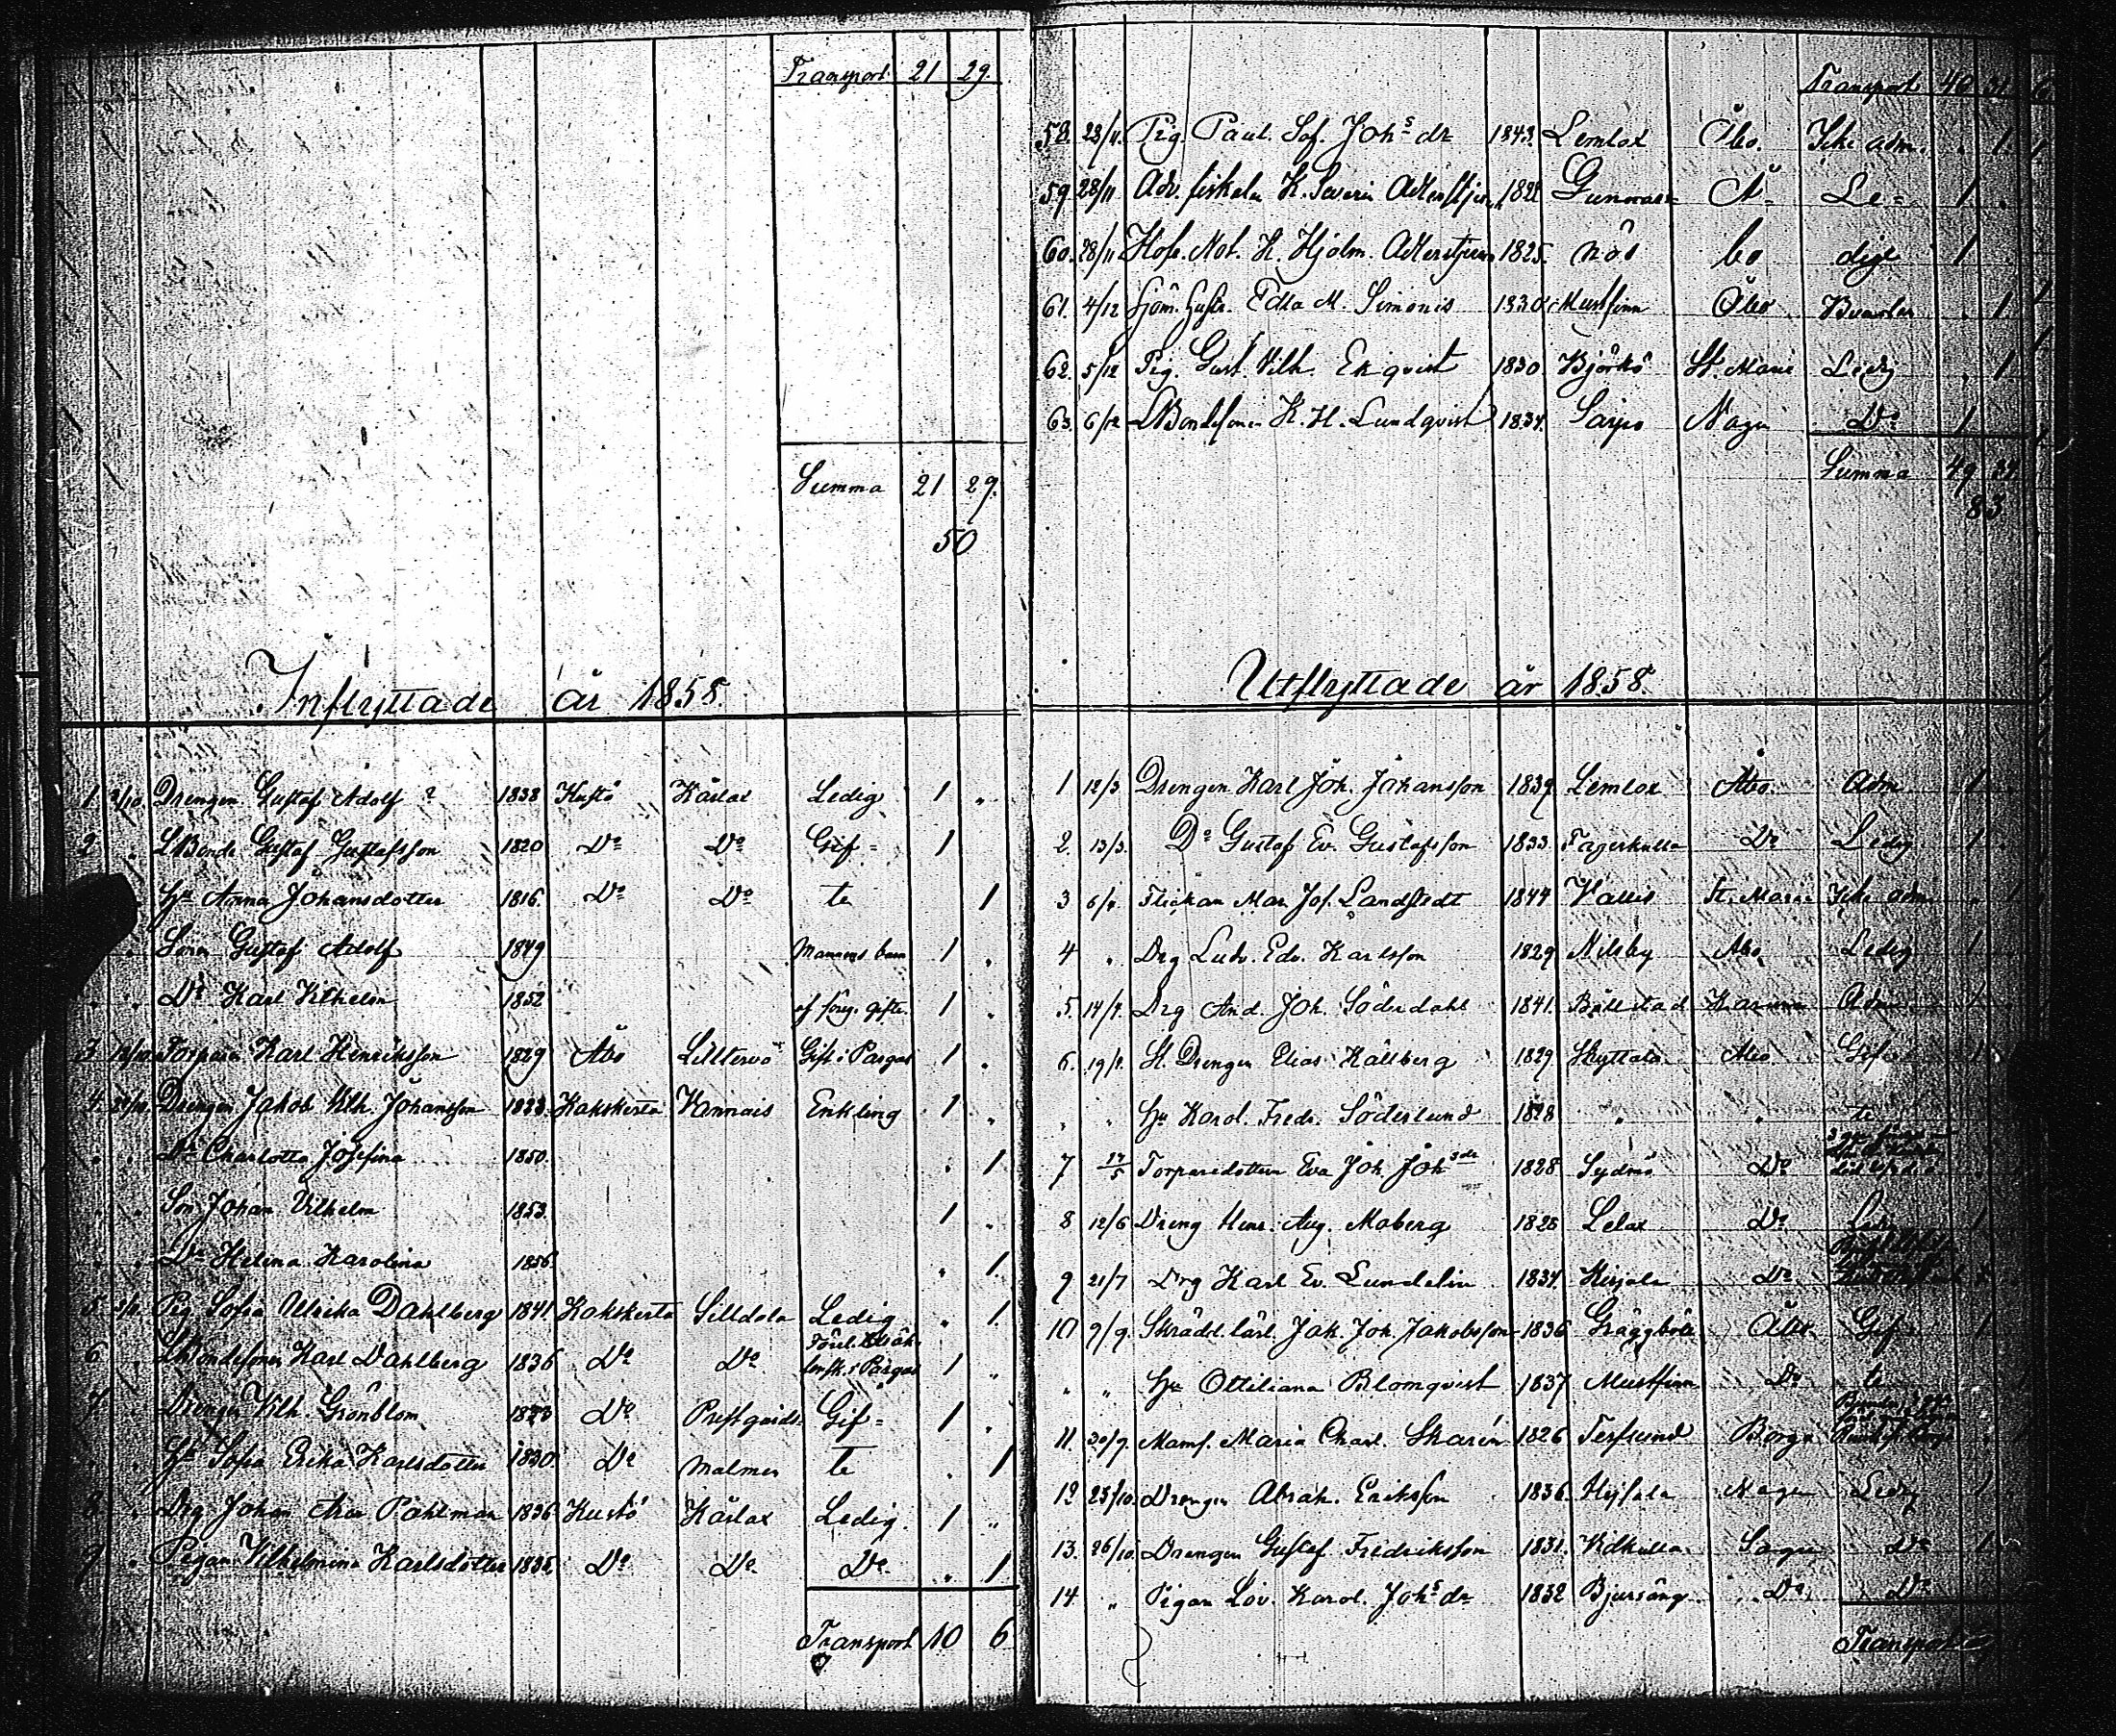 Transport 21 29.
Summa 21 29.
50
Inflyttade år 1858.
1 Drengen Gustaf Adolf ? 1838 Kustö Kärlax Ledig 1 "
2 " LBonde Gustaf Gustafsson 1820 Do Do Gif= 1
Hu Anna Johansdotter 1816. Do Do te 1
" Son Gustaf Adolf 1849 Mannens barn 1 "
" " Do Karl Vilhelm 1852 af föreg. gifte. 1 "
3 Torparen Karl Henriksson 1829 Åbo Lilltervo Gift i Pargas 1 "
4. Drengen Jakob Vilh. Johansson 1823. Kakskerta Vannais Enkling 1 "
" " Dr Charlotta Josefina 1850. " 1
" " Son Johan Vilhelm 1853. 1 "
" " Dr Helena Karolina 1856. " 1
5 Pig Sofia Ulrika Dahlberg 1841. Kakskerta Silldala Ledig " 1.
6 " LBondesonen Karl Dahlberg 1836 Do Do i Pargas 1 "
7 " Drengen Vilh. Grönblom 1823 Do Prestgårds= Gif= 1 "
" " Hu Sofia Erika Karlsdotter 1830 Do malmen te " 1
8 " Drg Johan Påhlman 1836 Kustö Kärlax Ledig 1 "
9 " Pigan Vilhelmina Karlsdotter 1836 Do Do Do " 1
Transport 10 6
Transport 40
58. 28/11. Pig. Paul. Sof. Johs dr 1843. Lemlax Åbo. Icke adm. " 1
59. 28/11 Adv. fiskalen K. Severin 1821 Gunnars= Å= Le= 1 "
60. 28/11 Hofr. Not. K. Hjalm. Adlerstjerna 1825. näs bo dige 1
61. 4/12 Gustr. Edla M. Simonis 1830 Mustfinn Åbo " 1
62. 5/12 Pig. Gust. Vilh. Ekqvist 1830 Björkö St. Marie Ledig " 1
63. 6/12 LBondesonen K. H. Lundqvist 1834. Sarpo Nagu Do 1
Summa 49 34
83
Utflyttade år 1858.
1 12/3 Drengen Karl Joh. Johansson 1839. Lemlax Åbo. Adm 1
2. 13/3. Do Gustaf Ev. Gustafsson 1833. Fagerkulla Do Ledig 1 "
3 Flickan Mar. Jos. Landstedt 1844 Vallis St. Marie Icke adm " 1
4 " Drg Ludv. Edv. Karlsson 1829 Nilsby Åbo Ledig 1
5. Drg And. Joh. Söderdahl 1841. Karuna Adm 1
6. St. Drengen Elias Källberg 1829 Skyttala Åbo Gif= 1
" " Hu Karol. Fredr. Söderlund 1828 " " te
7 17/5 Torparedottern Eva Joh. Johsdr 1828 Sydmo Do
8 12/6 Dreng Henr. Aug. Moberg 1828 Lelax Do Ledig 1
9 21/7 Drg Karl Ev. Lundelin 1834. Kirjala Do
10 9/9. Skrädd. lärl. Jak. Joh. Jakobsson 1836 Gräggböle Åbo Gif= 1
" " Hu Ottiliana Blomqvist 1837 Mustfinn Do te
11. 20/9. Mams. Maria Charl. Skarin 1826 Terfsund Borgå
12 25/10. Drengen Abrah. Eriksson 1836. Hejsala Nagu Ledig 1
13. 26/10. Drengen Gustaf Fredriksson 1831. Vidkulla Do 1
14 " Pigan Lov. Karol. Johs dr 1832 Bjursäng Do Do
Transport